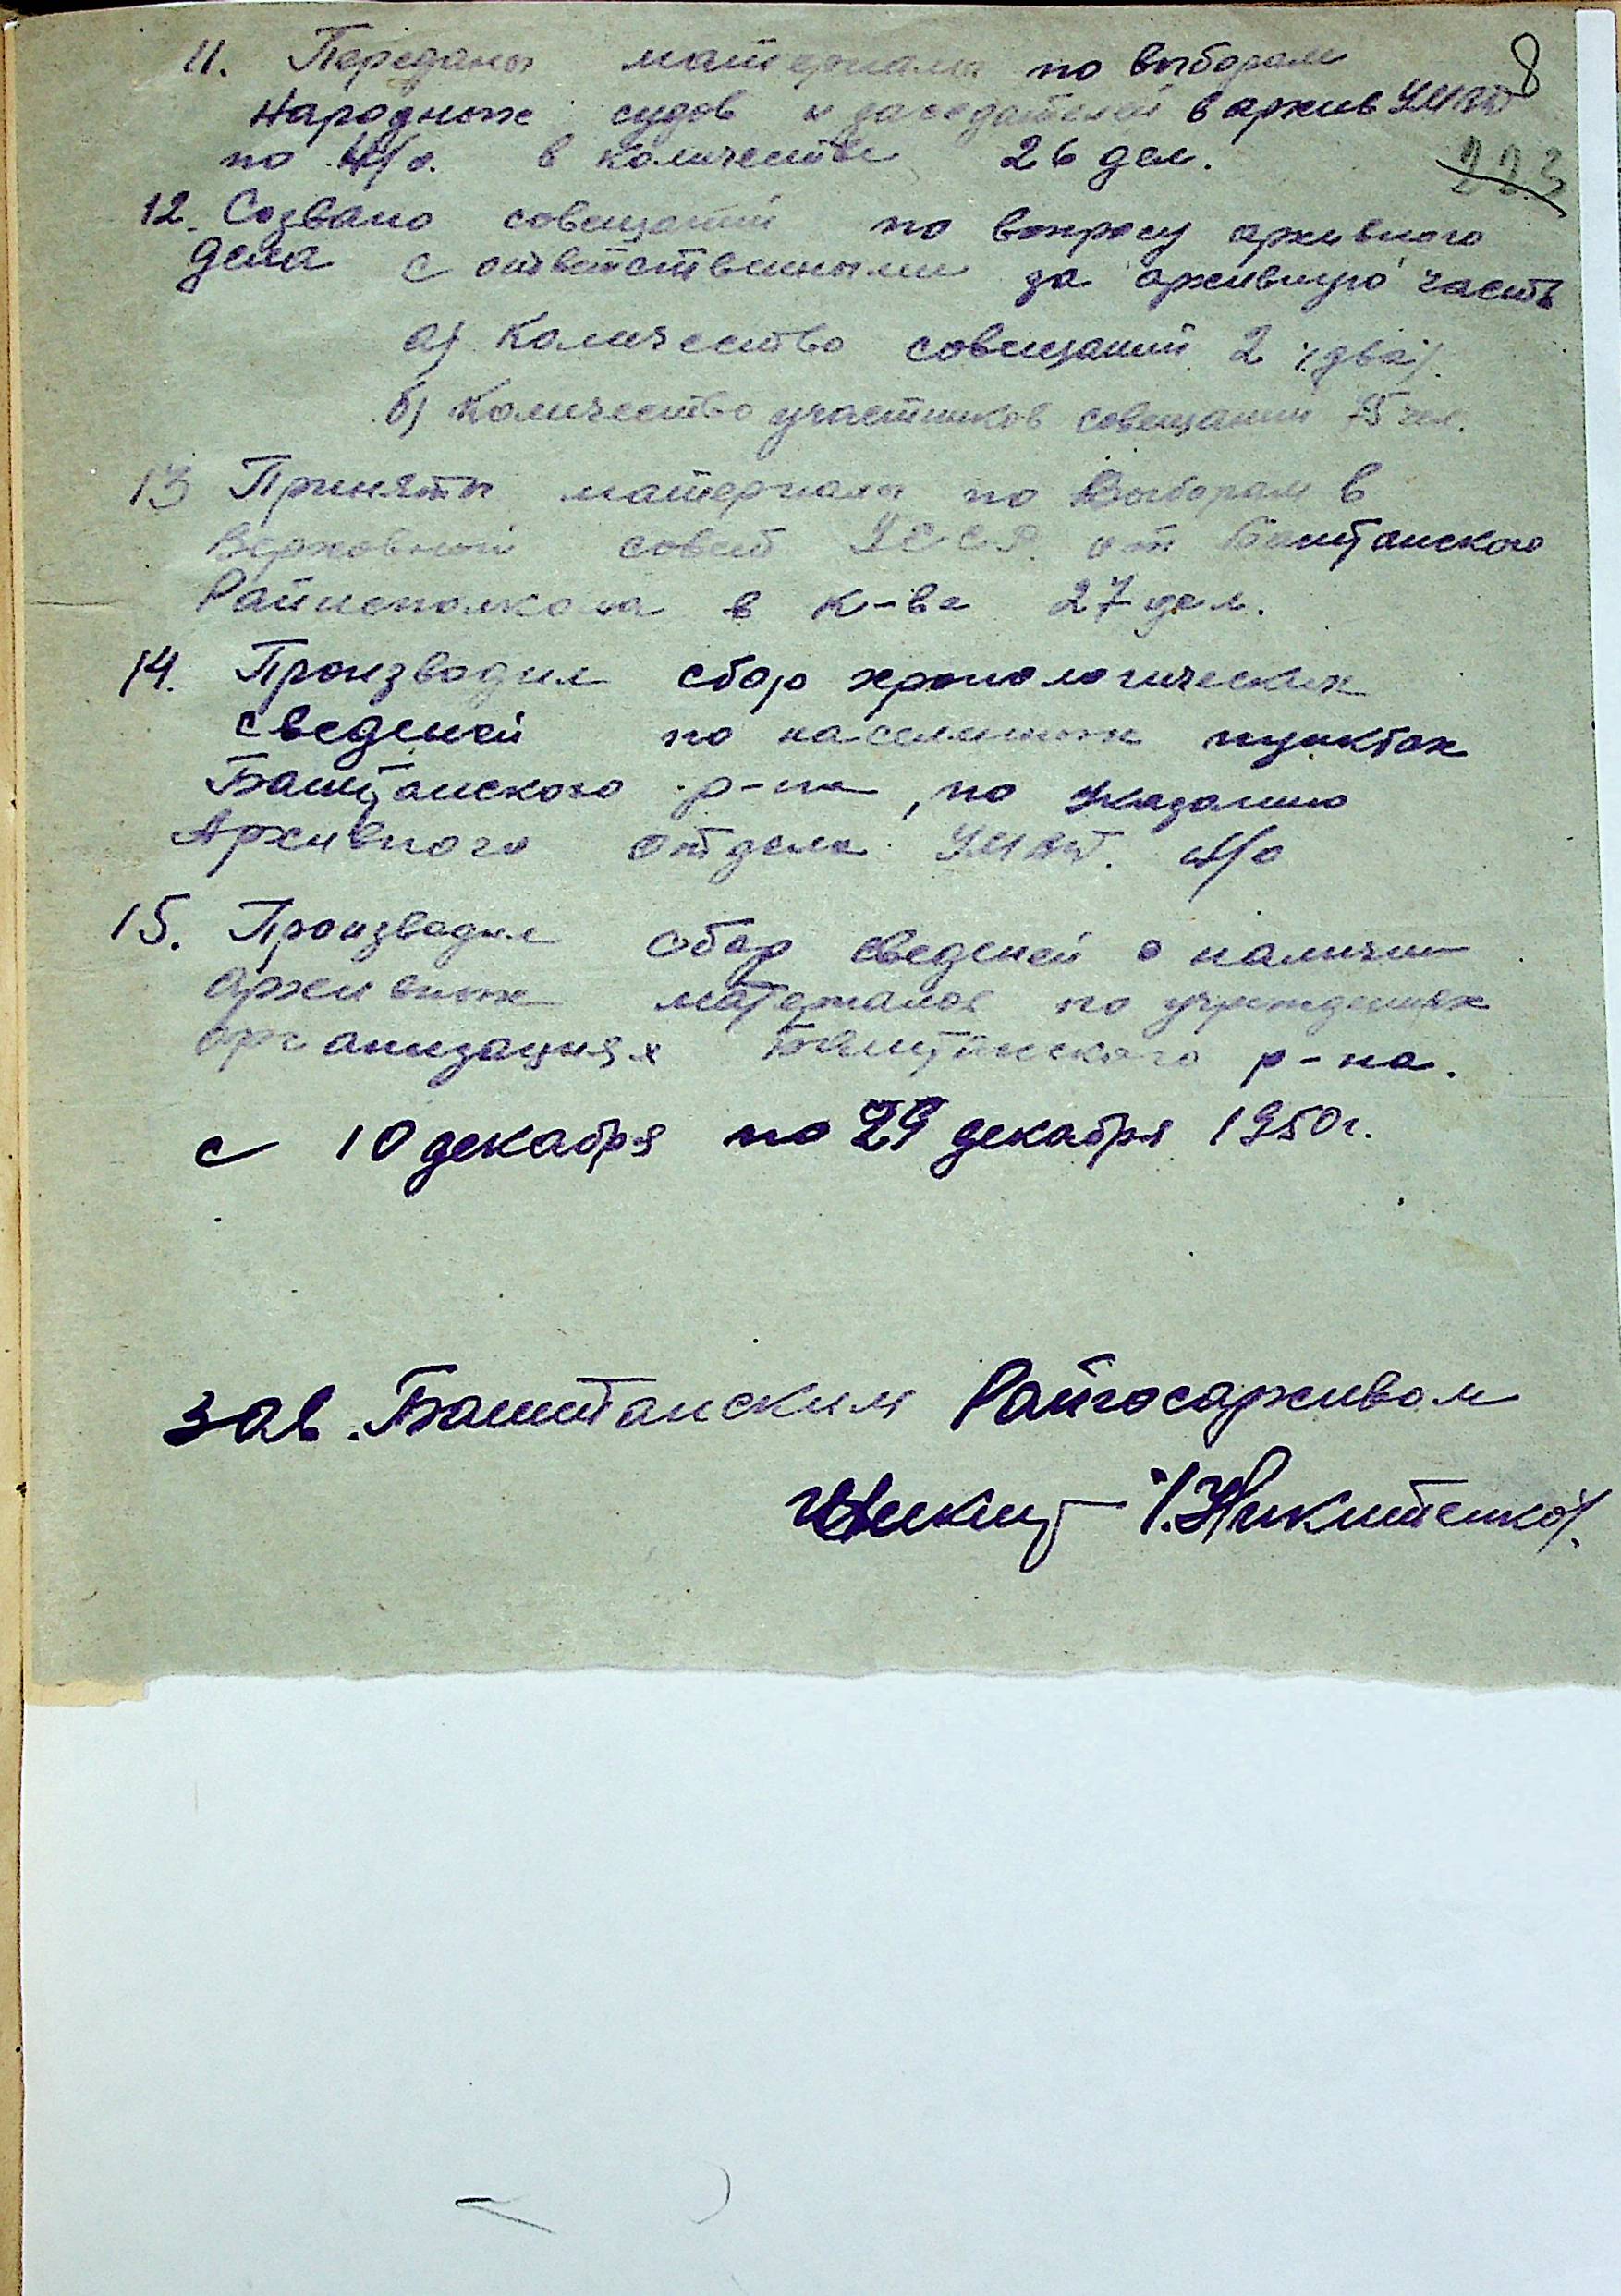 8
223
11. Переданы материалы по выборам
Народных судов и заседателей в архив УМВД
по Н/о. в количестве 26 дел.
12. Созвано совещаний по вопросу архивного
дела с ответственными за архивную часть
а) Количество совещаний 2 /два/.
б) Количество участников совещаний 75 чел.
13 Приняты материалы по Выборам в
Верховный совет УССР. от Баштанского
Райисполкома в к-ве 27 дел.
14. Производил сбор хронологических
сведений по населенных пунктах
Баштанского р-на, по указанию
Архивного отдела УМВД. Н/о
15. Производил сбор сведений о наличии
архивных материалов по учреждениях
организациях Баштанского р-на.
с 10 декабря по 29 декабря 1950г.
Зав. Баштанским Райгосархивом
/.Никитенко/.